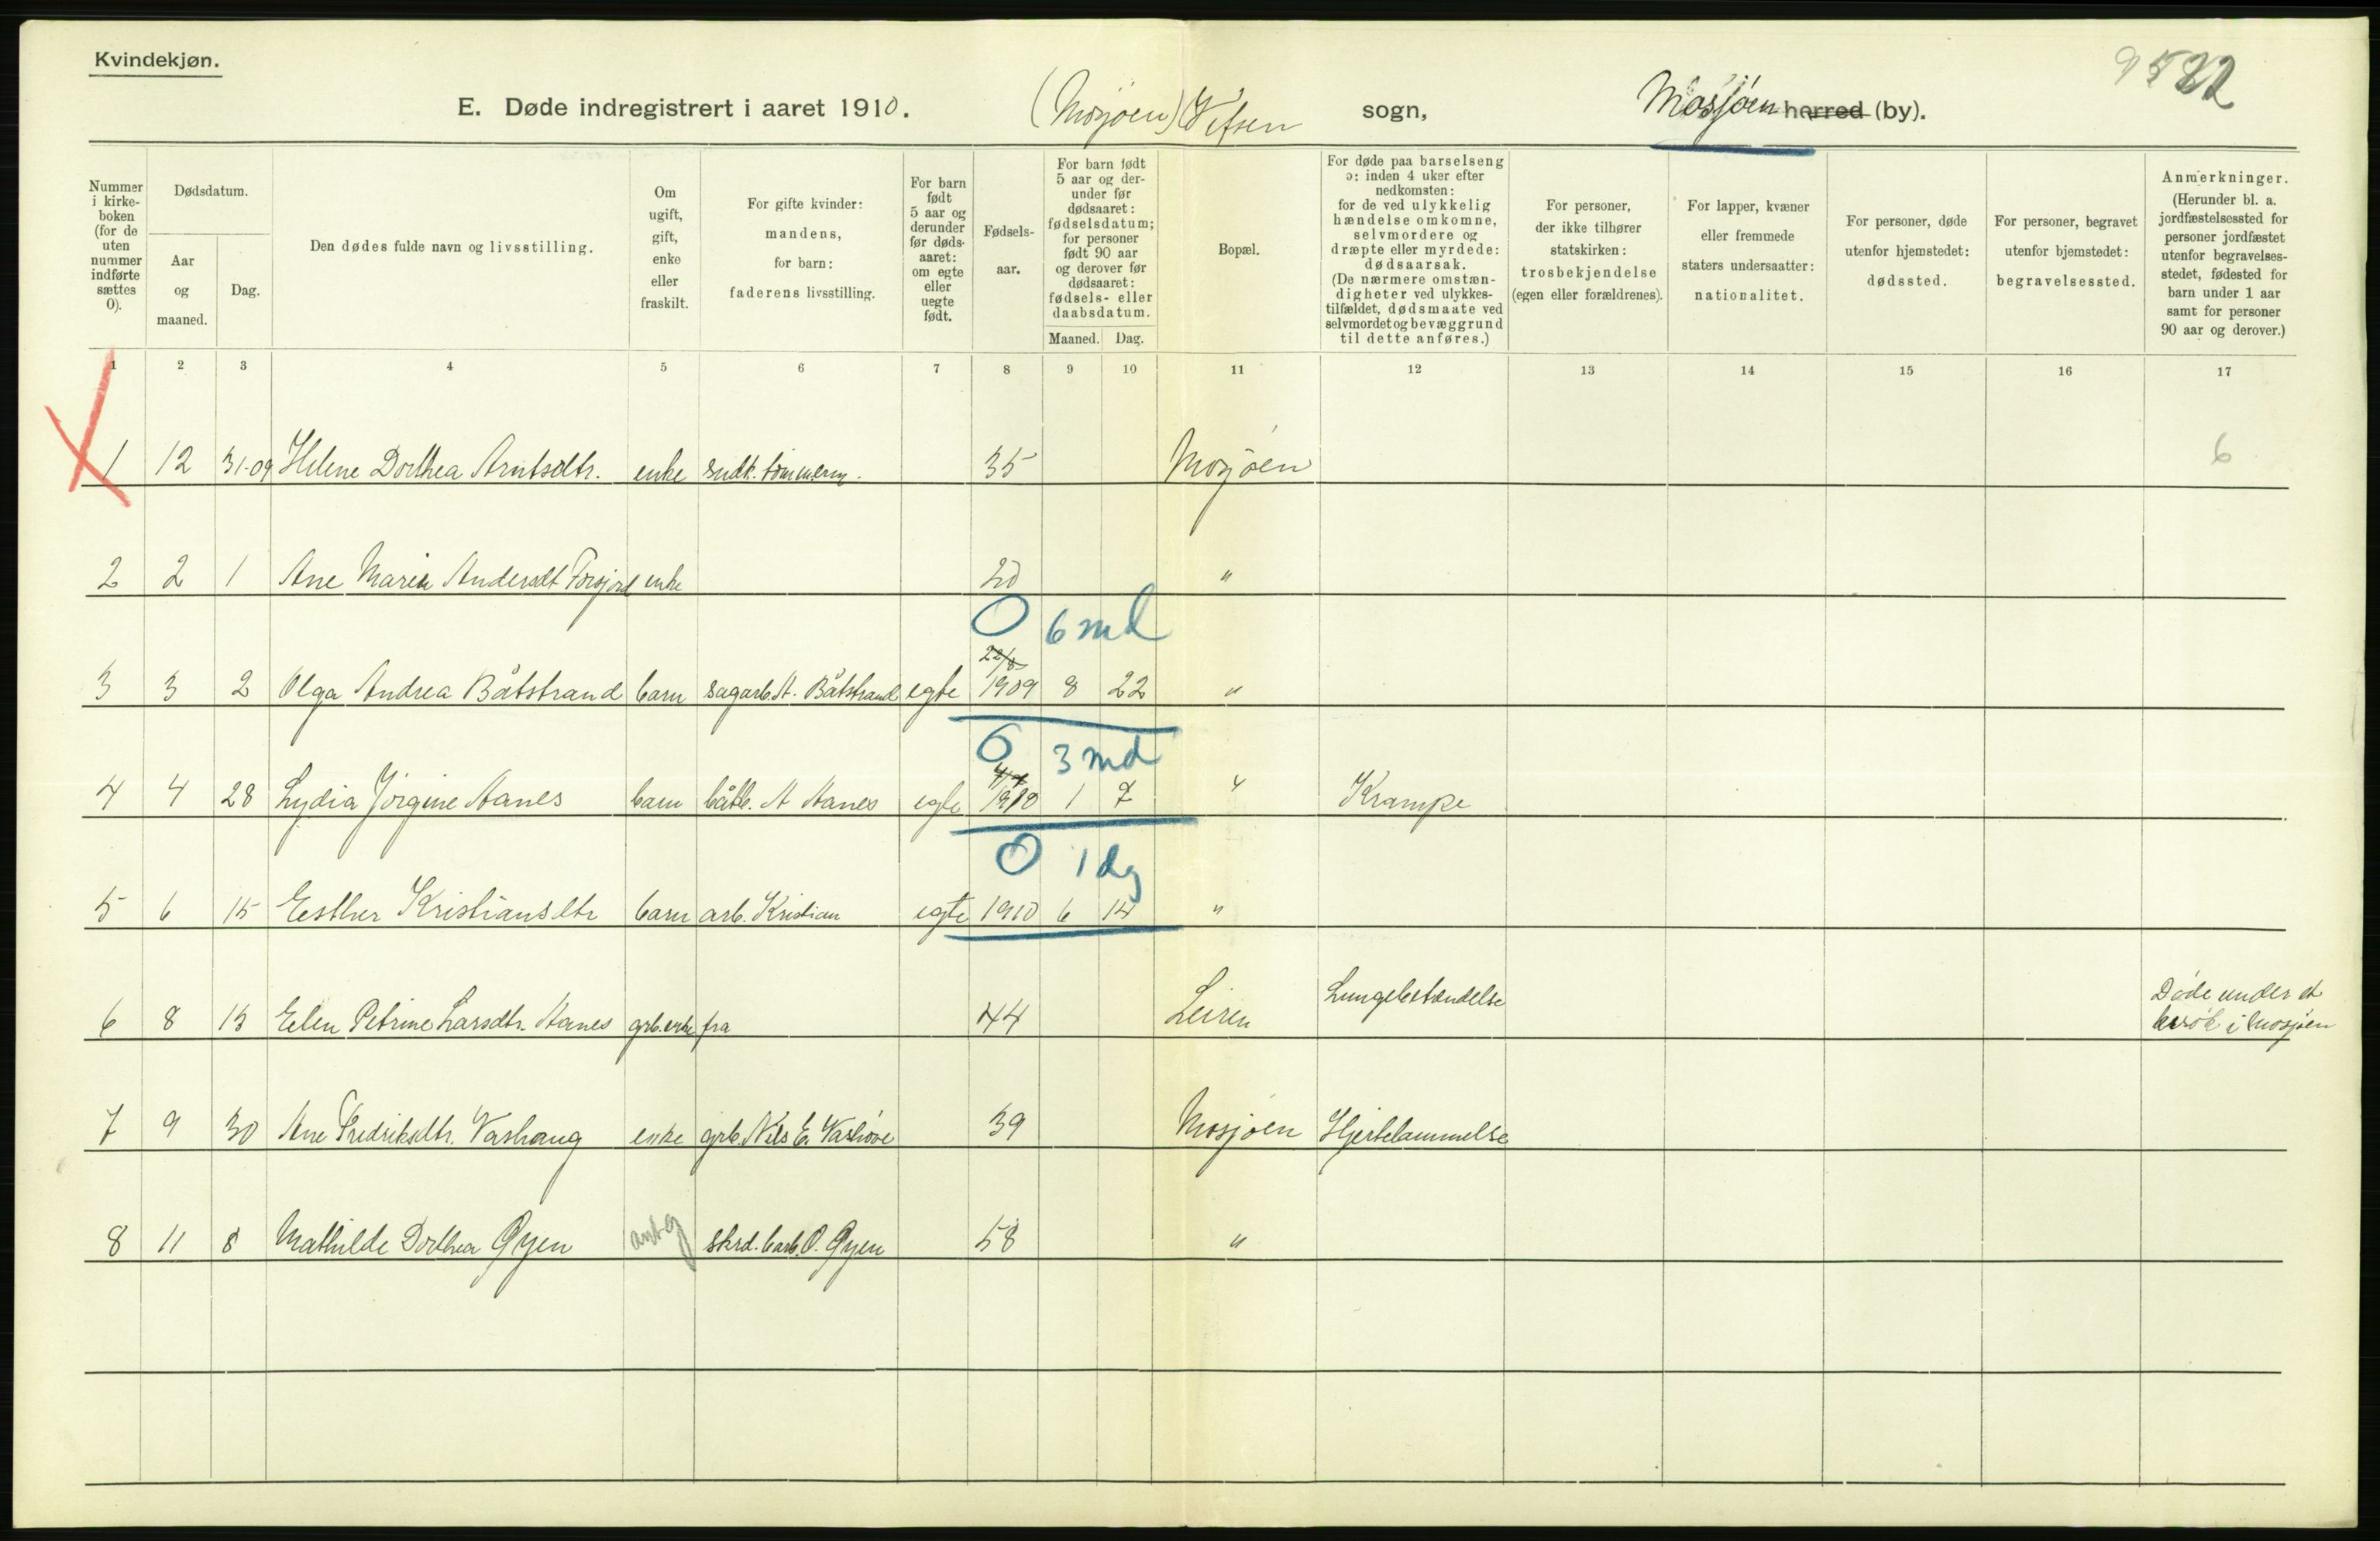 Kvindekjøn.
9582
E. Døde indregistrert i aaret 1910. (Mosjøen) Vefsen sogn, Mosjøen herred (by).
Nummer i kirke- boken (for de uten nummer indførte sættes 0).
Dødsdatum.
Aar og maaned.
Dag.
Den dødes fulde navn og livsstilling.
Om ugift, gift, enke eller fraskilt.
For gifte kvinder: mandens, for barn: faderens livsstilling.
For barn født 5 aar og derunder før døds- aaret: om egte eller uegte født.
Fødsels- aar.
For barn født 5 aar og der- under før dødsaaret: fødselsdatum; for personer født 90 aar og derover før dødsaaret: fødsels- eller daabsdatum.
Maaned. Dag.
Bopæl.
For døde paa barselseng ɔ: inden 4 uker efter nedkomsten: for de ved ulykkelig hændelse omkomne, selvmordere og dræpte eller myrdede: dødsaarsak. (De nærmere omstæn- digheter ved ulykkes- tilfældet, dødsmaate ved selvmordet og bevæggrund til dette anføres.)
For personer, der ikke tilhører statskirken: trosbekjendelse (egen eller forældrenes).
For lapper, kvæner eller fremmede staters undersaatter: nationalitet.
For personer, døde utenfor hjemstedet: dødssted.
For personer, begravet utenfor hjemstedet: begravelsessted.
Anmerkninger. (Herunder bl. a. jordfæstelsessted for personer jordfæstet utenfor begravelses- stedet, fødested for barn under 1 aar samt for personer 90 aar og derover.)
1 2 3 4 5 6 7 8 9 10 11 12 13 14 15 16 17
1 12 31-09 Helene Dorthea Arntsdtr. enke tømmerm. 35 Mosjøen 6
2 2 1 Ane Maria Andersdt Forsjord enke 20 "
0 6 md
22/8
3 3 2 Olga Andrea Båtstrand barn sagarb. A. Båtstrand egte 1909 8 22 "
0 3 md
4 4 28 Lydia Jörgine Aanes barn båtb. A Aanes egte 1910 1 7 " Krampe
0 1 dg
5 6 15 Eesther Kristiansdtr barn arb. Kristian egte 1910 6 14 "
6 8 13 Eelen Petrine Larsdtr. Aanes grb.enke fra 44 Leiren Lungebetændelse Döde under et besök i Mosjöen
7 9 30 Ane Fredriksdtr. Vashaug enke grb. Nils E. 39 Mosjøen Hjertelammelse
8 11 8 Mathilde Dorthea Øyen ant g skrd. barb. O. Øyen 58 "